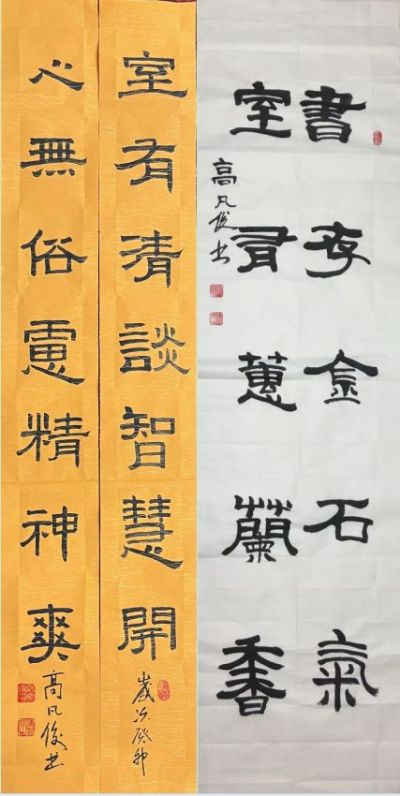 書存金石氣
室有蕙蘭香
高凡俊书
室有清談智慧開
歲次癸卯
心無俗慮精神爽
高凡俊书